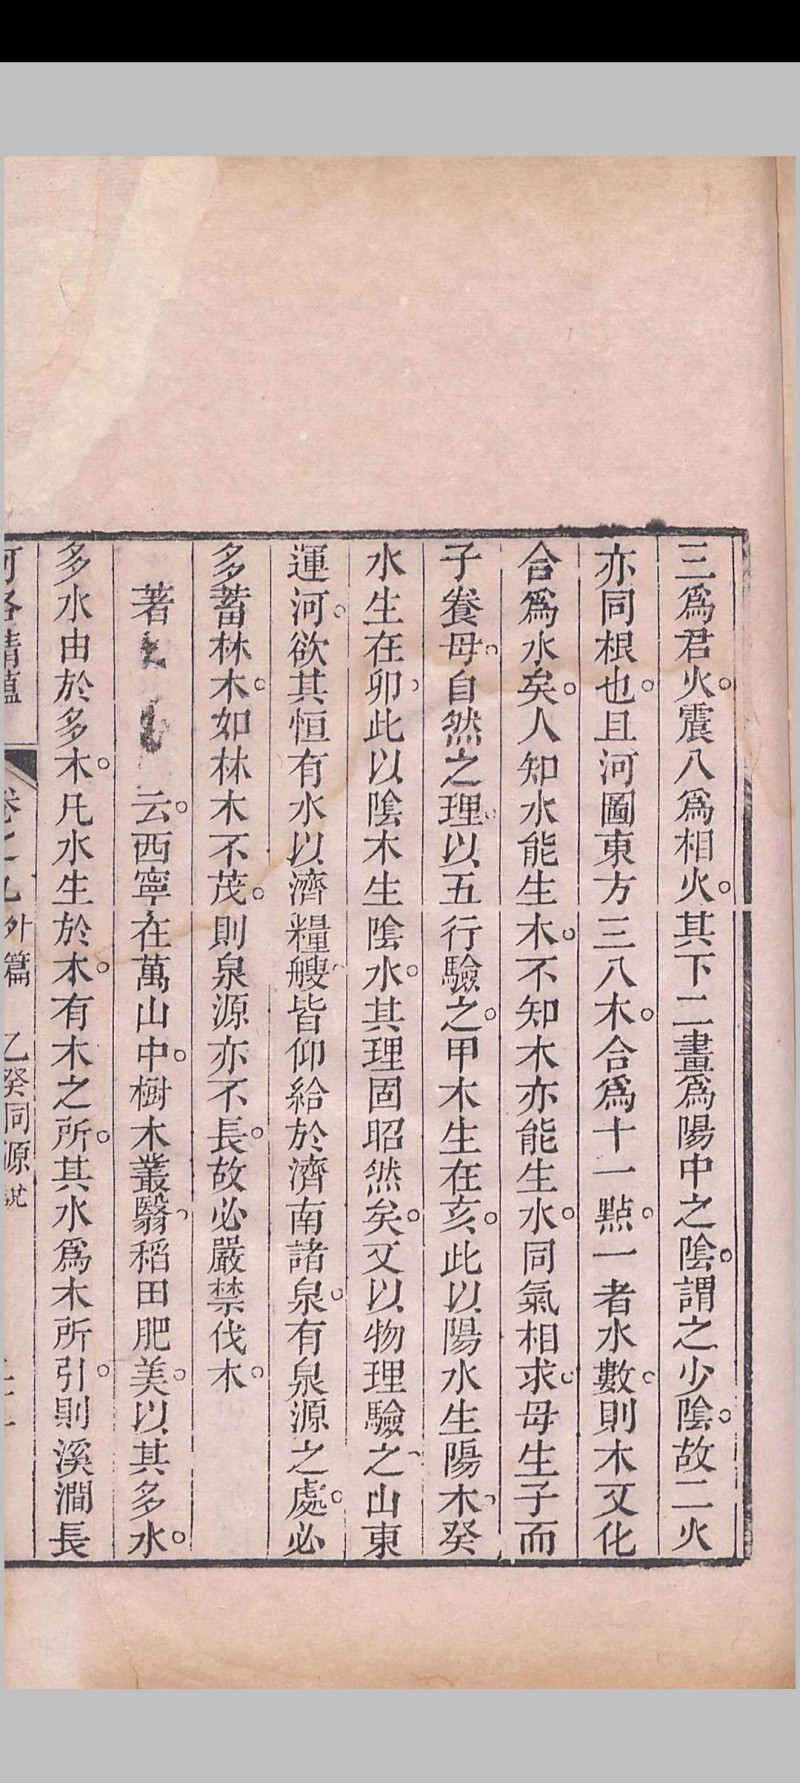 三爲君火。震八爲相火。其下二畫爲陽中之陰。謂之少陰。故二火
亦同根也。且河圖東方三八木。合爲十一點。一者水數。則木又化
合爲水矣。人知水能生木。不知木亦能生水。同氣相求。母生子而
子養母。自然之理。以五行驗之。甲木生在亥。此以陽水生陽木。癸
水生在卯。此以陰木生陰水。其理固昭然矣。又以物理驗之。山東
運河。欲其恒有水以濟糧艘。皆仰給於濟南諸泉。有泉源之處。必
多蓄林木。如林木不茂。則泉源亦不長。故必嚴禁伐木。
著 云。西寧在萬山中。樹木叢翳。稻田肥美。以其多水。
多水由於多木。凡水生於木。有木之所。其水爲木所引。則溪澗長
河洛精蘊 卷之九外篇 乙癸同源說